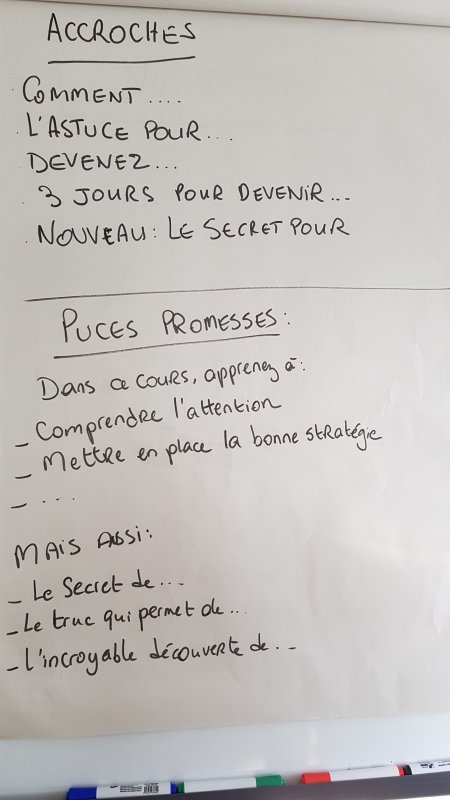 ACCROCHES
COMMENT ....
L'ASTUCE POUR...
DEVENEZ...
3 JOURS POUR DEVENIR...
NOUVEAU: LE SECRET POUR
PUCES PROMESSES:
Dans ce cours, apprenez à:
_ Comprendre l'attention
_ Mettre en place la bonne stratégie
_ ...
MAIS AUSSI:
_ Le Secret de...
_ Le truc qui permet de...
_ L'incroyable découverte de...